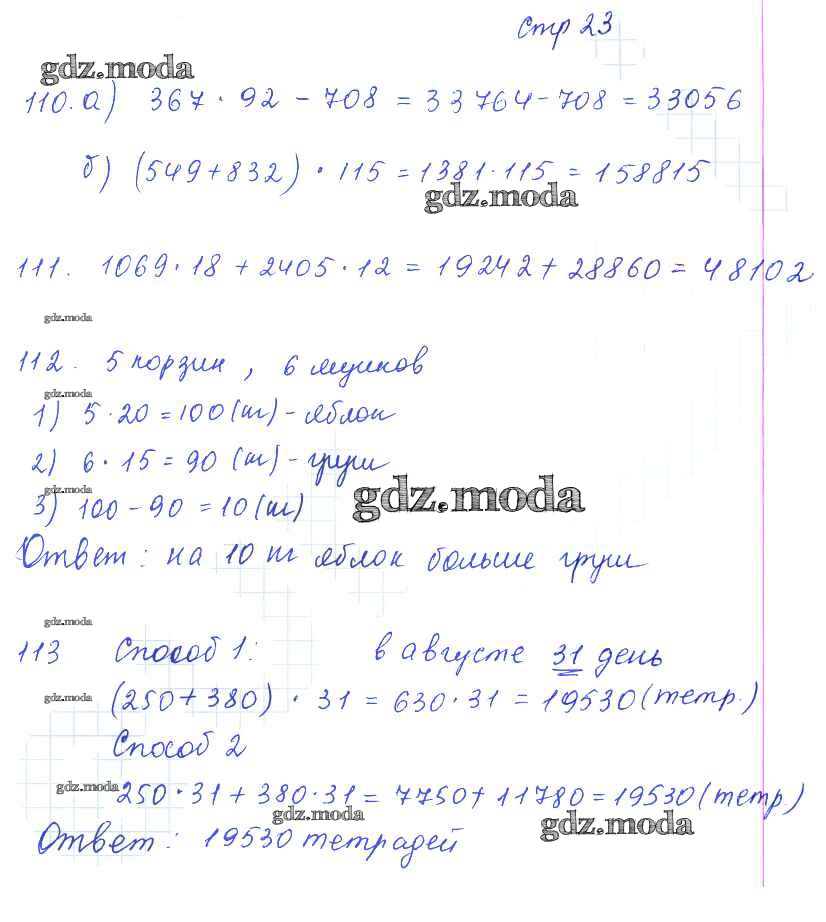 стр 23
gdz.moda
110. а) 367 · 92 - 708 = 33764 - 708 = 33056
б) (549 + 832) · 115 = 1381 · 115 = 158815
gdz.moda
111. 1069 · 18 + 2405 · 12 = 19242 + 28860 = 48102
gdz.moda
112. 5 корзин, 6 ящиков
gdz.moda
1) 5 · 20 = 100 (кг) - яблок
2) 6 · 15 = 90 (кг) - груш
gdz.moda
gdz.moda
3) 100 - 90 = 10 (кг)
Ответ: на 10 кг яблок больше груш
gdz.moda
113 Способ 1: в августе 31 день
gdz.moda
(250 + 380) · 31 = 630 · 31 = 19530 (тетр.)
Способ 2
gdz.moda
250 · 31 + 380 · 31 = 7750 + 11780 = 19530 (тетр)
gdz.moda
gdz.moda
Ответ: 19530 тетрадей